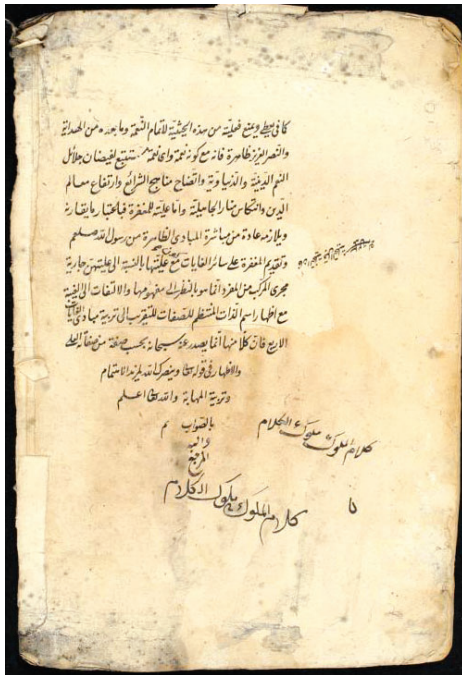 كافي يعطي ويمنع فعلية من هذه الحيثية لاتمام النعمة وما بعده من الهداية
والنصر العزيز ظاهرة فانه مع كونه نعمة واي نعمة مستتبع لفيضان جلائل
النعم الدينية والدنياوية واتضاح مناهج الشرائع وارتفاع معالم
الدين وانتكاس منار الجاهلية واما عليته للمغفرة فباعتبار ما يقارنه
ويلازمه عادة من مباشرة المبادي الظاهرة من رسول الله صلعم
وتقديم المغفرة على سائر الغايات مع عليتها بالنسبة الى عليتهن جارية
مجرى المركب من المفرد انما هو بالنظر الى مفهومها والالتفات الى الغيبة
مع اظهار اسم الذات المنتظم للصفات للتقريب الى تربية مبادي الغايات
الاربع فان كلا منها انما يصدر عنه سبحانه بحسب صفة من صفاته العلى
والاظهار في قوله تعالى وينصرك الله لمزيد الاهتمام
وتربية المهابة والله تعالى اعلم
بالصواب تم
واليه
المرجع
كلام الملوك ملوك الكلام
كلام الملوك ملوك الكلام